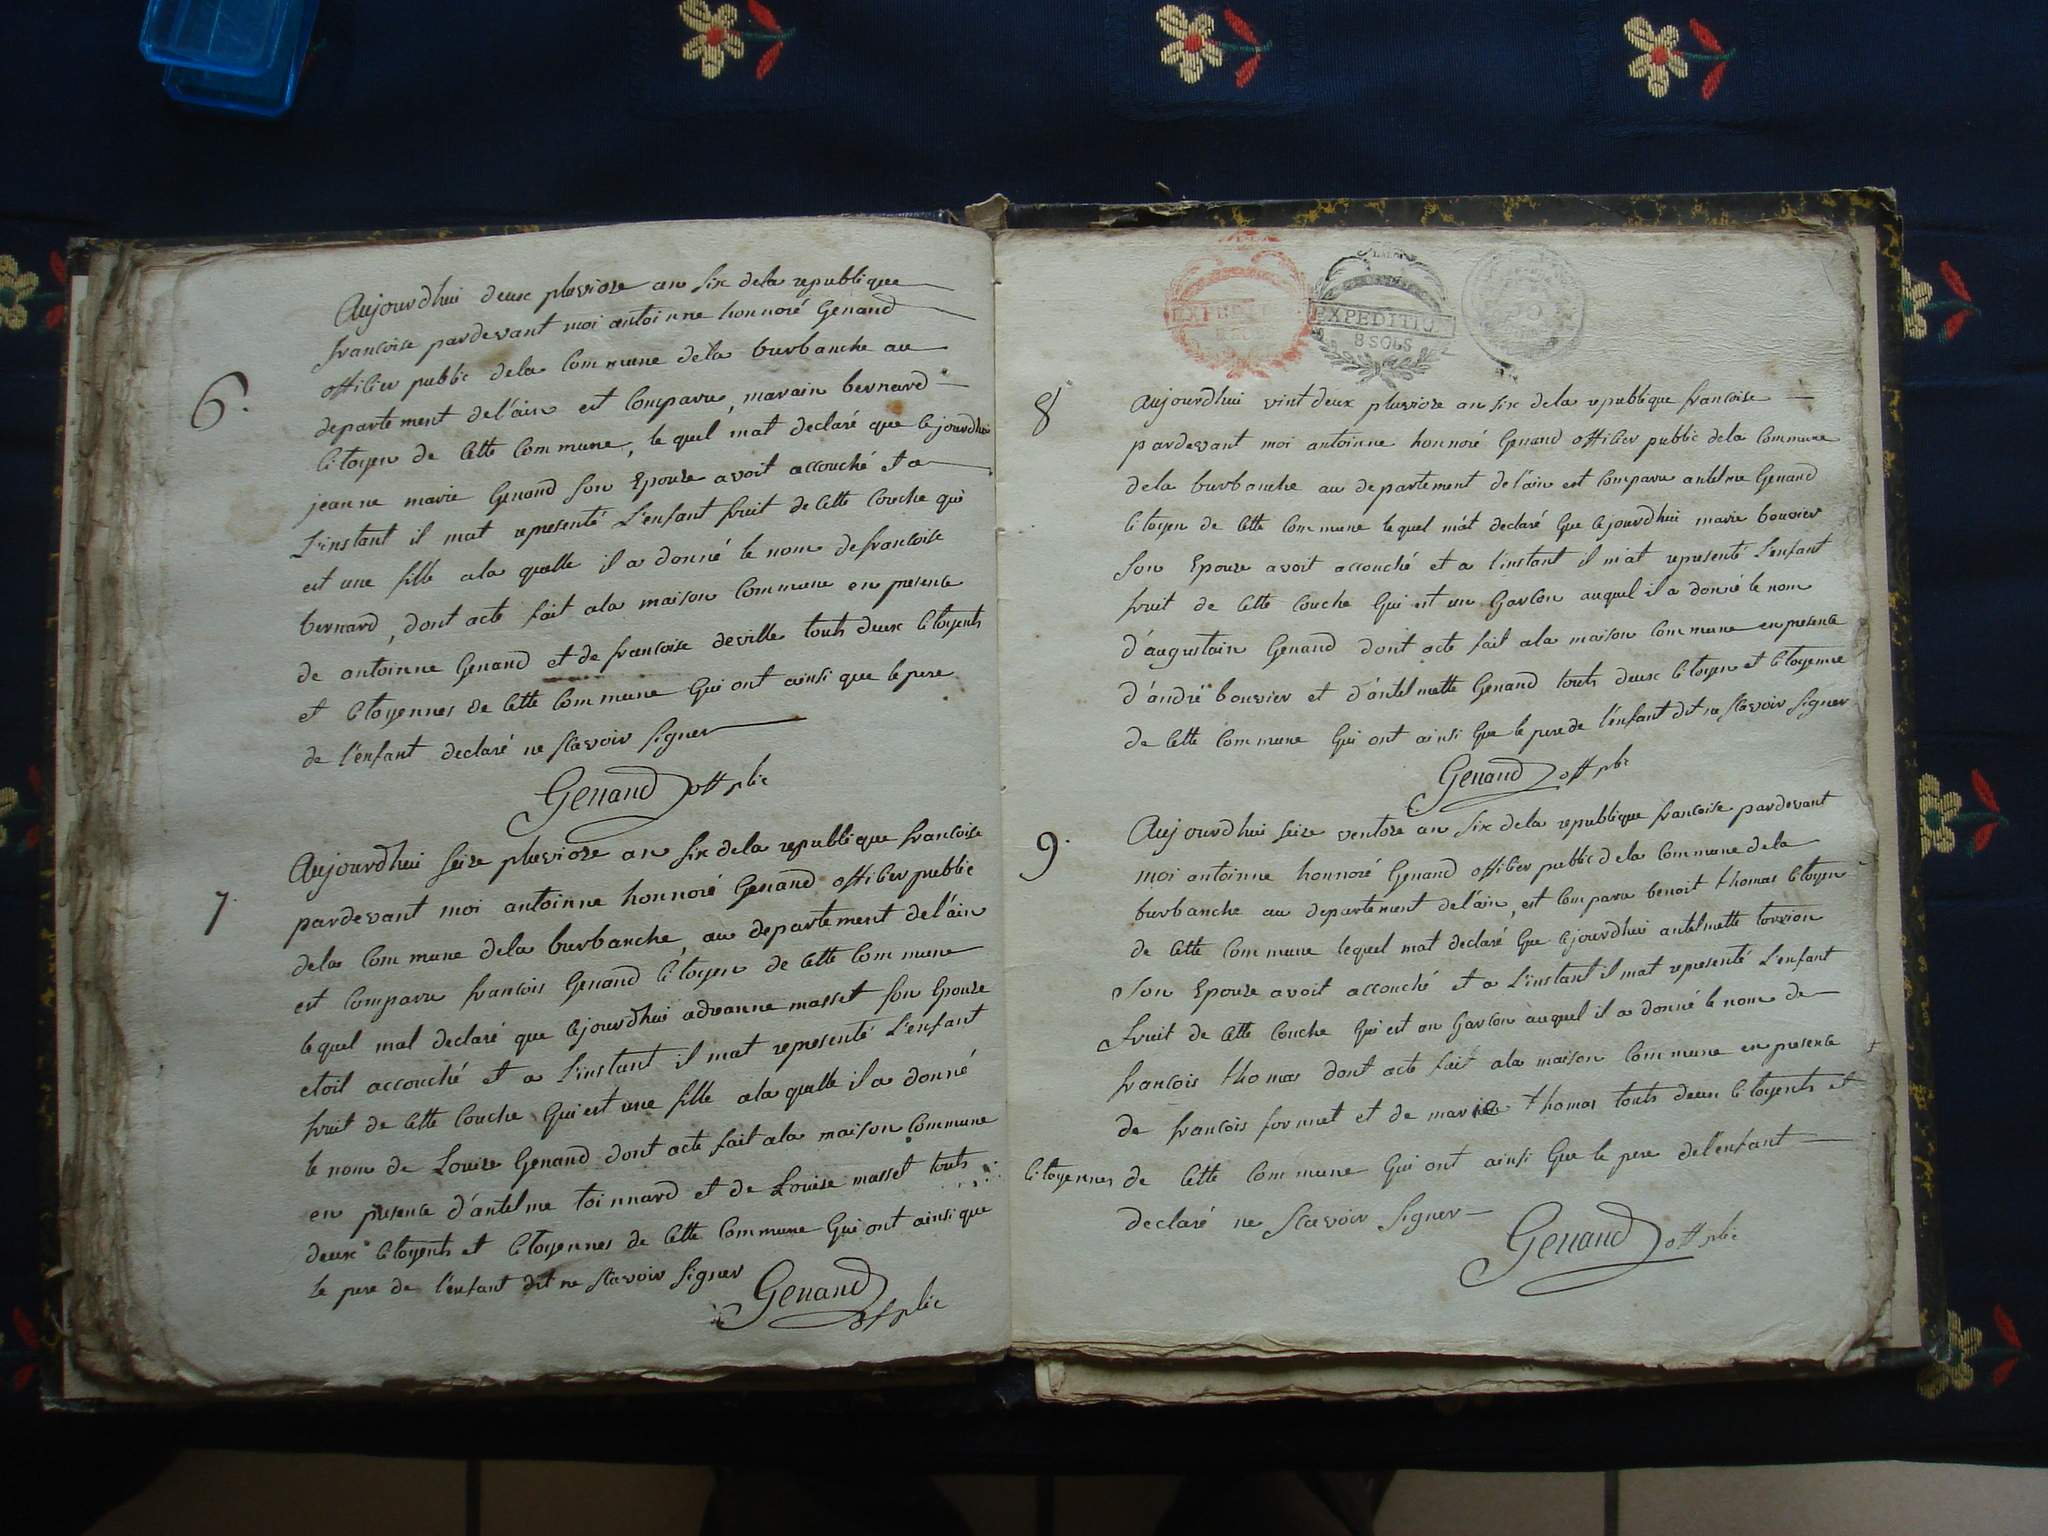 6.
Aujourdhui deux pluvioze an six dela republique
francoise pardevant moi antoinne honnoré Genand
officier public dela commune dela burbanche au
departement del'ain est comparu, marain bernard
citoyen de cette commune, le quel mat declaré que cejourdhui
jeanne marie Genand son epouze avoit accouché et a
L'instant il mat representé L'enfant fruit de cette couche qui
est une fille ala quelle il a donné le nom de francoise
bernard, dont acte fait ala maison commune en presence
de antoinne Genand et de francoise deville touts deux citoyents
et citoyennes de cette commune qui ont ainsi que le pere
de l'enfant declaré ne scavoir signer
Genand off plic
7.
Aujourdhui seize pluvioze an six dela republique francoise
pardevant moi antoinne honnoré Genand officier public
dela commune dela burbanche, au departement del'ain
est comparu francois Genand citoyen de cette commune
lequel mat declaré que cejourdhui adreanne masset son epouze
etoit accouché et a L'instant il mat representé L'enfant
fruit de cette couche qui est une fille ala quelle il a donné
le nom de Louise Genand dont acte fait ala maison commune
en presence d'antelme toinnard et de Louise masset touts
deux citoyents et citoyennes de cette commune qui ont ainsi que
le pere de l'enfant dit ne scavoir signer
Genand
off plic
EXPEDITIO
8 SOLS
8
Aujourdhui vint deux pluvioze an six dela republique francoise
pardevant moi antoinne honnoré Genand officier public dela commune
dela burbanche au departement del'ain est comparu antelme Genand
citoyen de cette commune lequel m'at declaré que cejourdhui marie bouvier
son epouze avoit accouché et a l'instant il m'at representé L'enfant
fruit de cette couche qui est un garcon auquel il a donné le nom
d'augustain Genand dont acte fait ala maison commune en presence
d'andré bouvier et d'antelmette Genand touts deux citoyen et citoyenne
de cette commune qui ont ainsi que le pere de l'enfant dit ne scavoir signer
Genand off plic
9.
Aujourdhui seize ventoze an six dela republique francoise pardevant
moi antoinne honnoré Genand officier public dela commune dela
burbanche au departement del'ain, est comparu benoit thomas citoyen
de cette commune lequel mat declaré que cejourdhui antelmette torrion
son epouze avoit accouché et a L'instant il mat representé L'enfant
fruit de cette couche qui est un garcon auquel il a donné le nom de
francois thomas dont acte fait ala maison commune en presence
de francois fornnet et de marie thomas touts deux citoyents et
citoyennes de cette commune qui ont ainsi que le pere del'enfant
declaré ne scavoir signer
Genand off plic